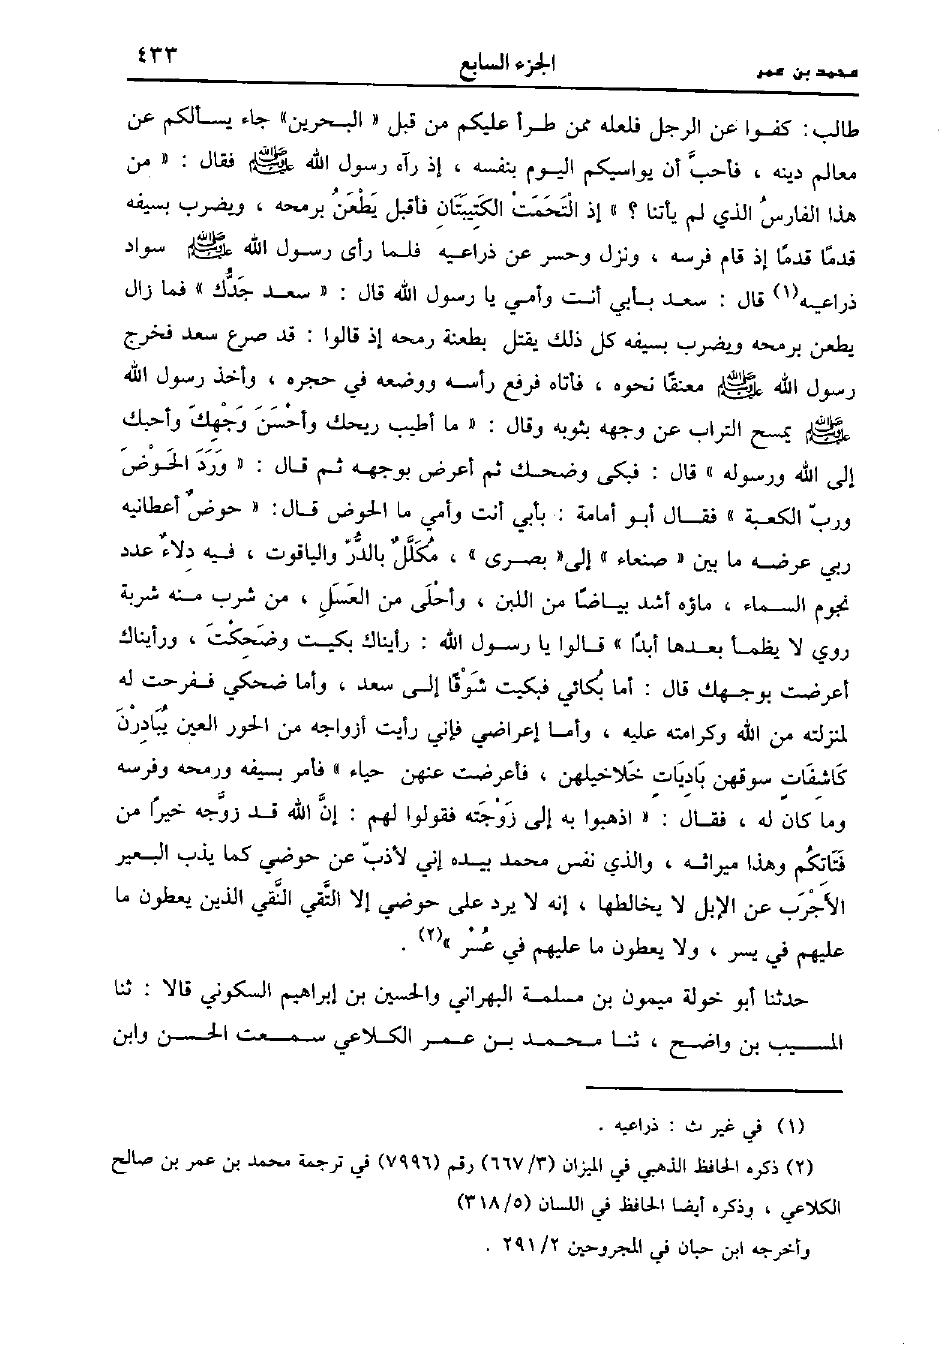 محمد بن عمر الجزء السابع ٤٣٣
طالب: كفوا عن الرجل فلعله ممن طرأ عليكم من قبل « البحرين» جاء يسألكم عن
معالم دينه ، فأحبَّ أن يواسيكم اليوم بنفسه ، إذ رآه رسول الله ﷺ فقال : « من
هذا الفارسُ الذي لم يأتنا ؟ » إذ الْتَحَمَتْ الكَتِيبَتَان فأقبل يَطْعَنُ برمحه ، ويضرب بسيفه
قدمًا قدمًا إذ قام فرسه ، ونزل وحسر عن ذراعيه فلما رأى رسول الله ﷺ سواد
ذراعيه(١) قال : سعد بأبي أنت وأمي يا رسول الله قال : « سعد جَدُّك » فما زال
يطعن برمحه ويضرب بسيفه كل ذلك يقتل بطعنة رمحه إذ قالوا : قد صرع سعد فخرج
رسول الله ﷺ معنقًا نحوه ، فأتاه فرفع رأسه ووضعه في حجره ، وأخذ رسول الله
ﷺ يمسح التراب عن وجهه بثوبه وقال : « ما أطيب ريحك وأحْسَنَ وَجْهِكَ وأحبك
إلى الله ورسوله » قال : فبكى وضحك ثم أعرض بوجهه ثم قال : « وَرَدَ الحَوْضَ
وربِّ الكعبة » فقال أبو أمامة : بأبي أنت وأمي ما الحوض قال: « حوضٌ أعطانيه
ربي عرضه ما بين « صنعاء » إلى« بصرى » ، مُكَلَّلٌ بالدُّرِّ والياقوت ، فيه دِلاءٌ عدد
نجوم السماء ، ماؤه أشد بياضًا من اللبن ، وأحْلَى من العَسَلِ ، من شرب منه شربة
روي لا يظمأ بعدها أبدًا » قالوا يا رسول الله : رأيناك بكيت وضَحِكْتَ ، ورأيناك
أعرضت بوجهك قال : أما بُكائي فبكيت شَوْقًا إلى سعد ، وأما ضحكي ففرحت له
لمنزلته من الله وكرامته عليه ، وأما إعراضي فإني رأيت أزواجه من الحور العين يُبَادِرْنَ
كَاشفَات سوقهن بَاديَات خَلاخيلهن ، فأعرضت عنهن حياء » فأمر بسيفه ورمحه وفرسه
وما كان له ، فقال : « اذهبوا به إلى زَوْجَته فقولوا لهم : إنَّ الله قد زوَّجه خيرًا من
فَتَاتكُم وهذا ميراثه ، والذي نفس محمد بيده إني لأذبّ عن حوضي كما يذب البعير
الأجْرَب عن الإبل لا يخالطها ، إنه لا يرد على حوضي إلا التَّقي النَّقي الذين يعطون ما
عليهم في يسر ، ولا يعطون ما عليهم في عُسْر »(٢) .
حدثنا أبو خولة ميمون بن مسلمة البهراني والحسين بن إبراهيم السكوني قالا : ثنا
المسيب بن واضح ، ثنا محمد بن عمر الكلاعي سمعت الحسن وابن
(١) في غير ث : ذراعيه .
(٢) ذكره الحافظ الذهبي في الميزان (٣/ ٦٦٧) رقم (٧٩٩٦) في ترجمة محمد بن عمر بن صالح
الكلاعي ، وذكره أيضا الحافظ في اللسان (٥/ ٣١٨)
وأخرجه ابن حبان في المجروحين ٢/ ٢٩١ .